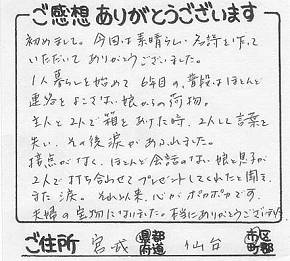 ご感想 ありがとうございます
初めまして。今回は素晴らしい名詩を作って
いただいてありがとうございました。
1人暮らしを始めて6年目の、普段はほとんど
連絡をよこさない娘からの荷物。
主人と2人で箱をあけた時、2人して言葉を
失い、その後涙があふれました。
接点がなく、ほとんど会話のない娘と息子が
2人で打ち合わせてプレゼントしてくれたと聞き、
また涙。それ以来、心がポカポカです。
夫婦の宝物になりました。本当にありがとうございます。
ご住所 宮城 都道府県 仙台 市区町郡